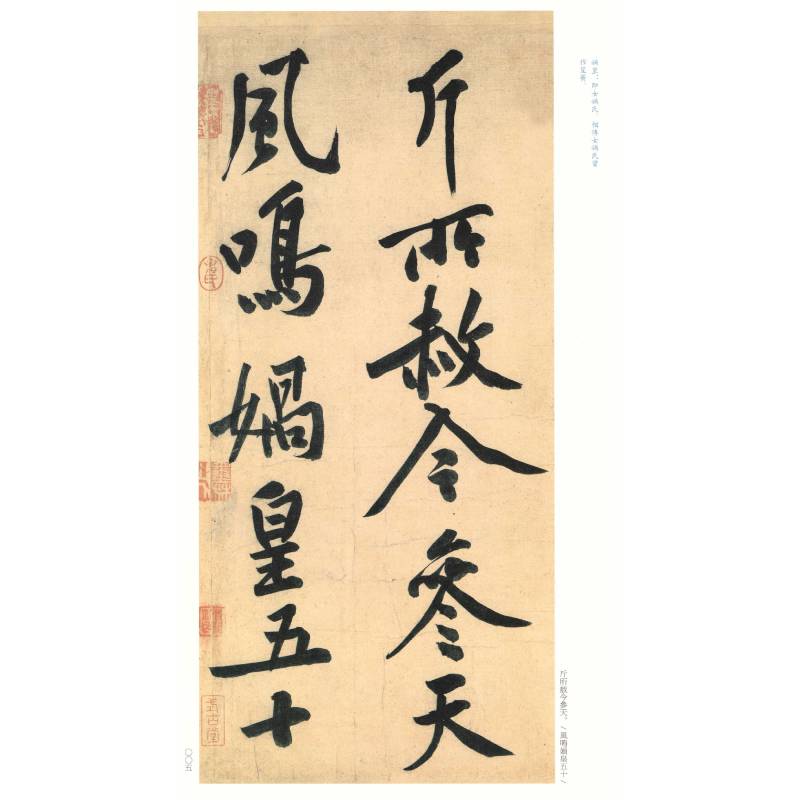 媧皇：即女媧氏。相傳女媧氏曾
作笙簧。
斤所赦今參天。/風鳴媧皇五十/
斤所赦今參天
風鳴媧皇五十
〇〇五